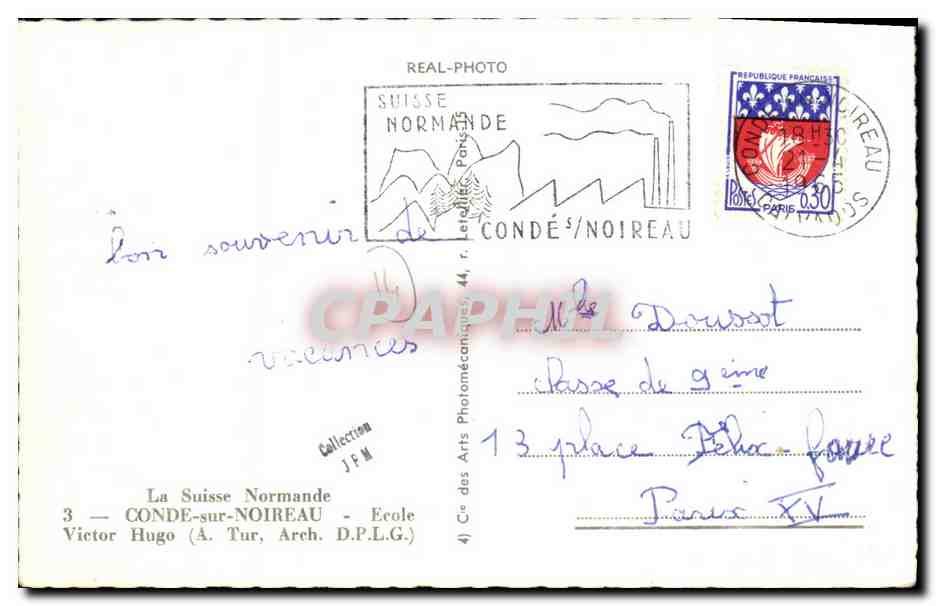 REAL-PHOTO
SUISSE
NORMANDE
CONDÉ S/NOIREAU
REPUBLIQUE FRANÇAISE
POSTES PARIS 0,30
18H30
CALVADOS
bon souvenir de
vacances
14
CPAPHIL
Mlle Doussot
Classe de 9ème
13 place Félix-Faure
Paris XV
Collection
JFM
La Suisse Normande
3 — CONDE-sur-NOIREAU - Ecole
Victor Hugo (A. Tur, Arch. D.P.L.G.)
4) Cie des Arts Photomécaniques, 44, r. Letellier, Paris-15